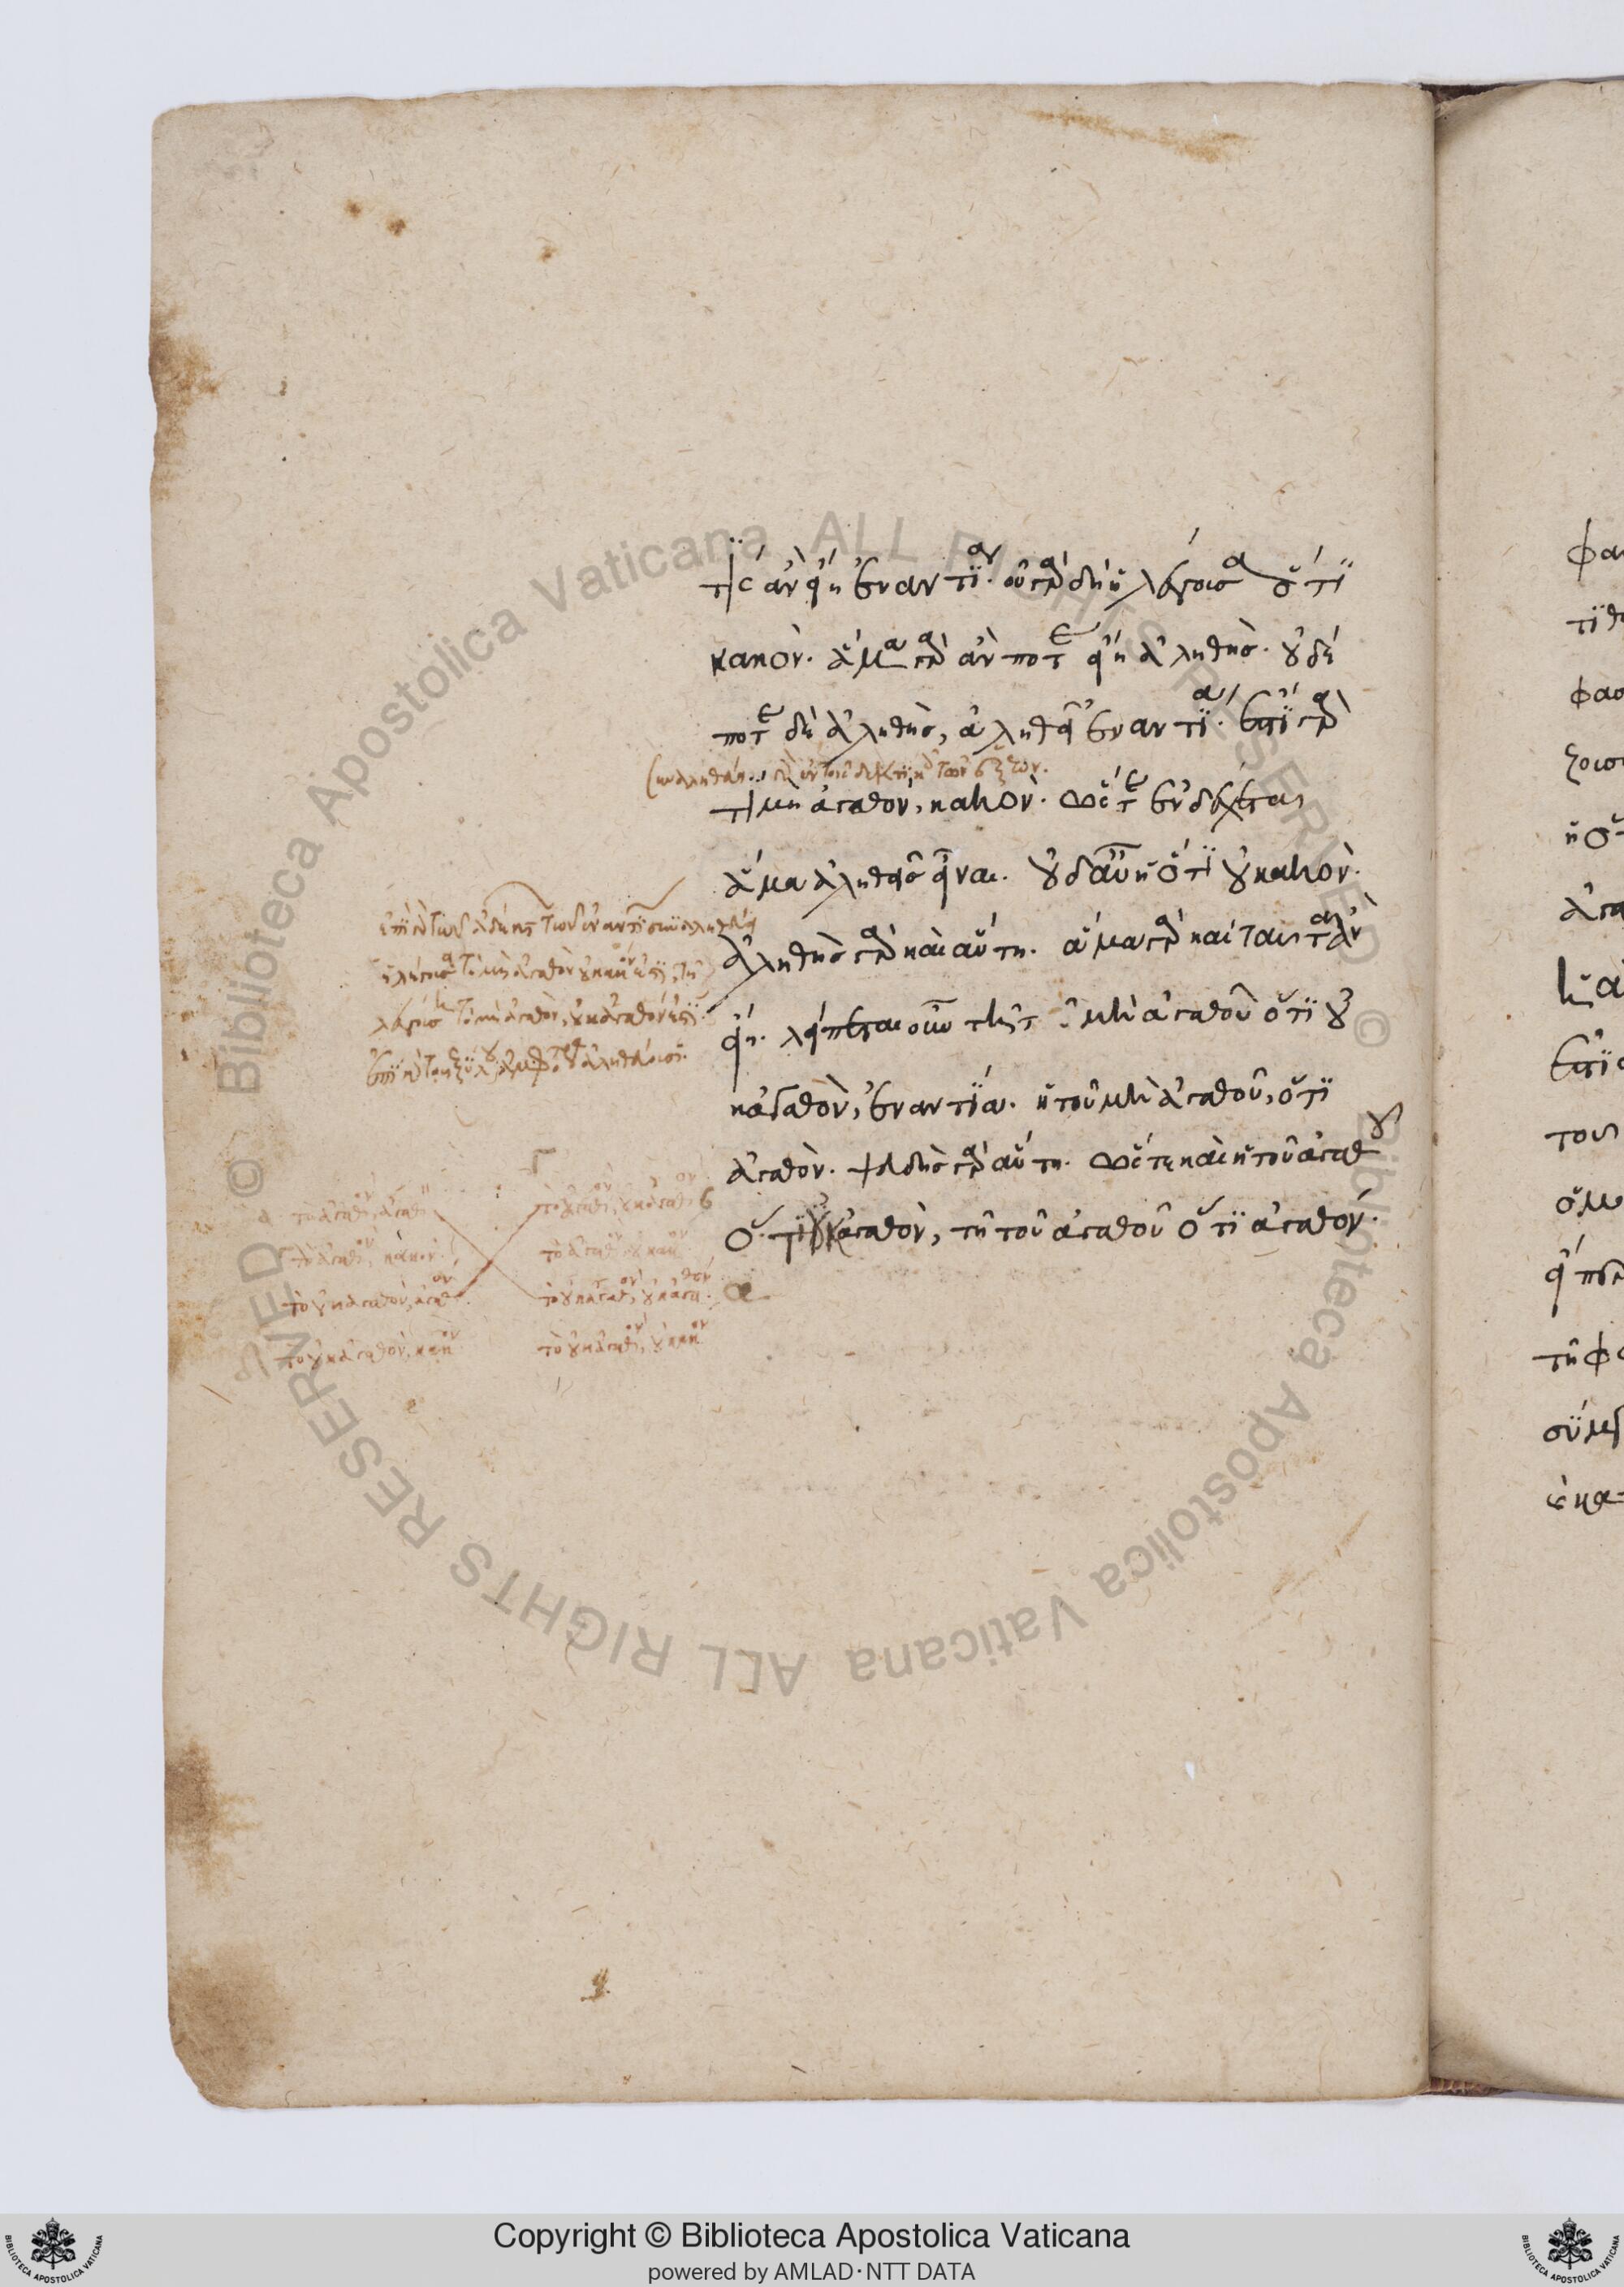 τίς ἂν εἴη ἐναντία. οὐ γὰρ δὴ ἡ λέγουσα ὅτι
κακόν. ἅμα γὰρ ἄν ποτε εἴη ἀληθής. οὐδέ
ποτε δὲ ἀληθὴς, ἀληθεῖ ἐναντία. ἐπεὶ γὰρ
τὶ μὴ ἀγαθὸν, κακόν. ὥστε ἐνδέχεται
ἅμα ἀληθεῖς εἶναι. οὐδ' αὖ ἡ ὅτι οὐ κακόν.
ἀληθὴς γὰρ καὶ αὕτη. ἅμα γὰρ καὶ ταῦτα ἂν
εἴη. λείπεται οὖν τῆ τοῦ μὴ ἀγαθοῦ ὅτι οὐ
κ ἀγαθὸν, ἐναντία. ἡ τοῦ μὴ ἀγαθοῦ, ὅτι
ἀγαθόν. ψευδὴς γὰρ αὕτη. ὥστε καὶ ἡ τοῦ ἀγαθοῦ
ὅτι οὐκ ἀγαθὸν, τῆ τοῦ ἀγαθοῦ ὅτι ἀγαθόν.
τὸ ἀγαθὸν, ἀγαθὸν
τὸ ἀγαθὸν, κακόν
τὸ οὐκ ἀγαθὸν, ἀγαθόν
τὸ οὐκ ἀγαθὸν, κακόν
τὸ ἀγαθὸν, οὐκ ἀγαθόν
τὸ ἀγαθὸν, οὐ κακόν
τὸ οὐκ ἀγαθὸν, οὐκ ἀγαθόν
τὸ οὐκ ἀγαθὸν, οὐ κακόν
Copyright © Biblioteca Apostolica Vaticana
powered by AMLAD·NTT DATA